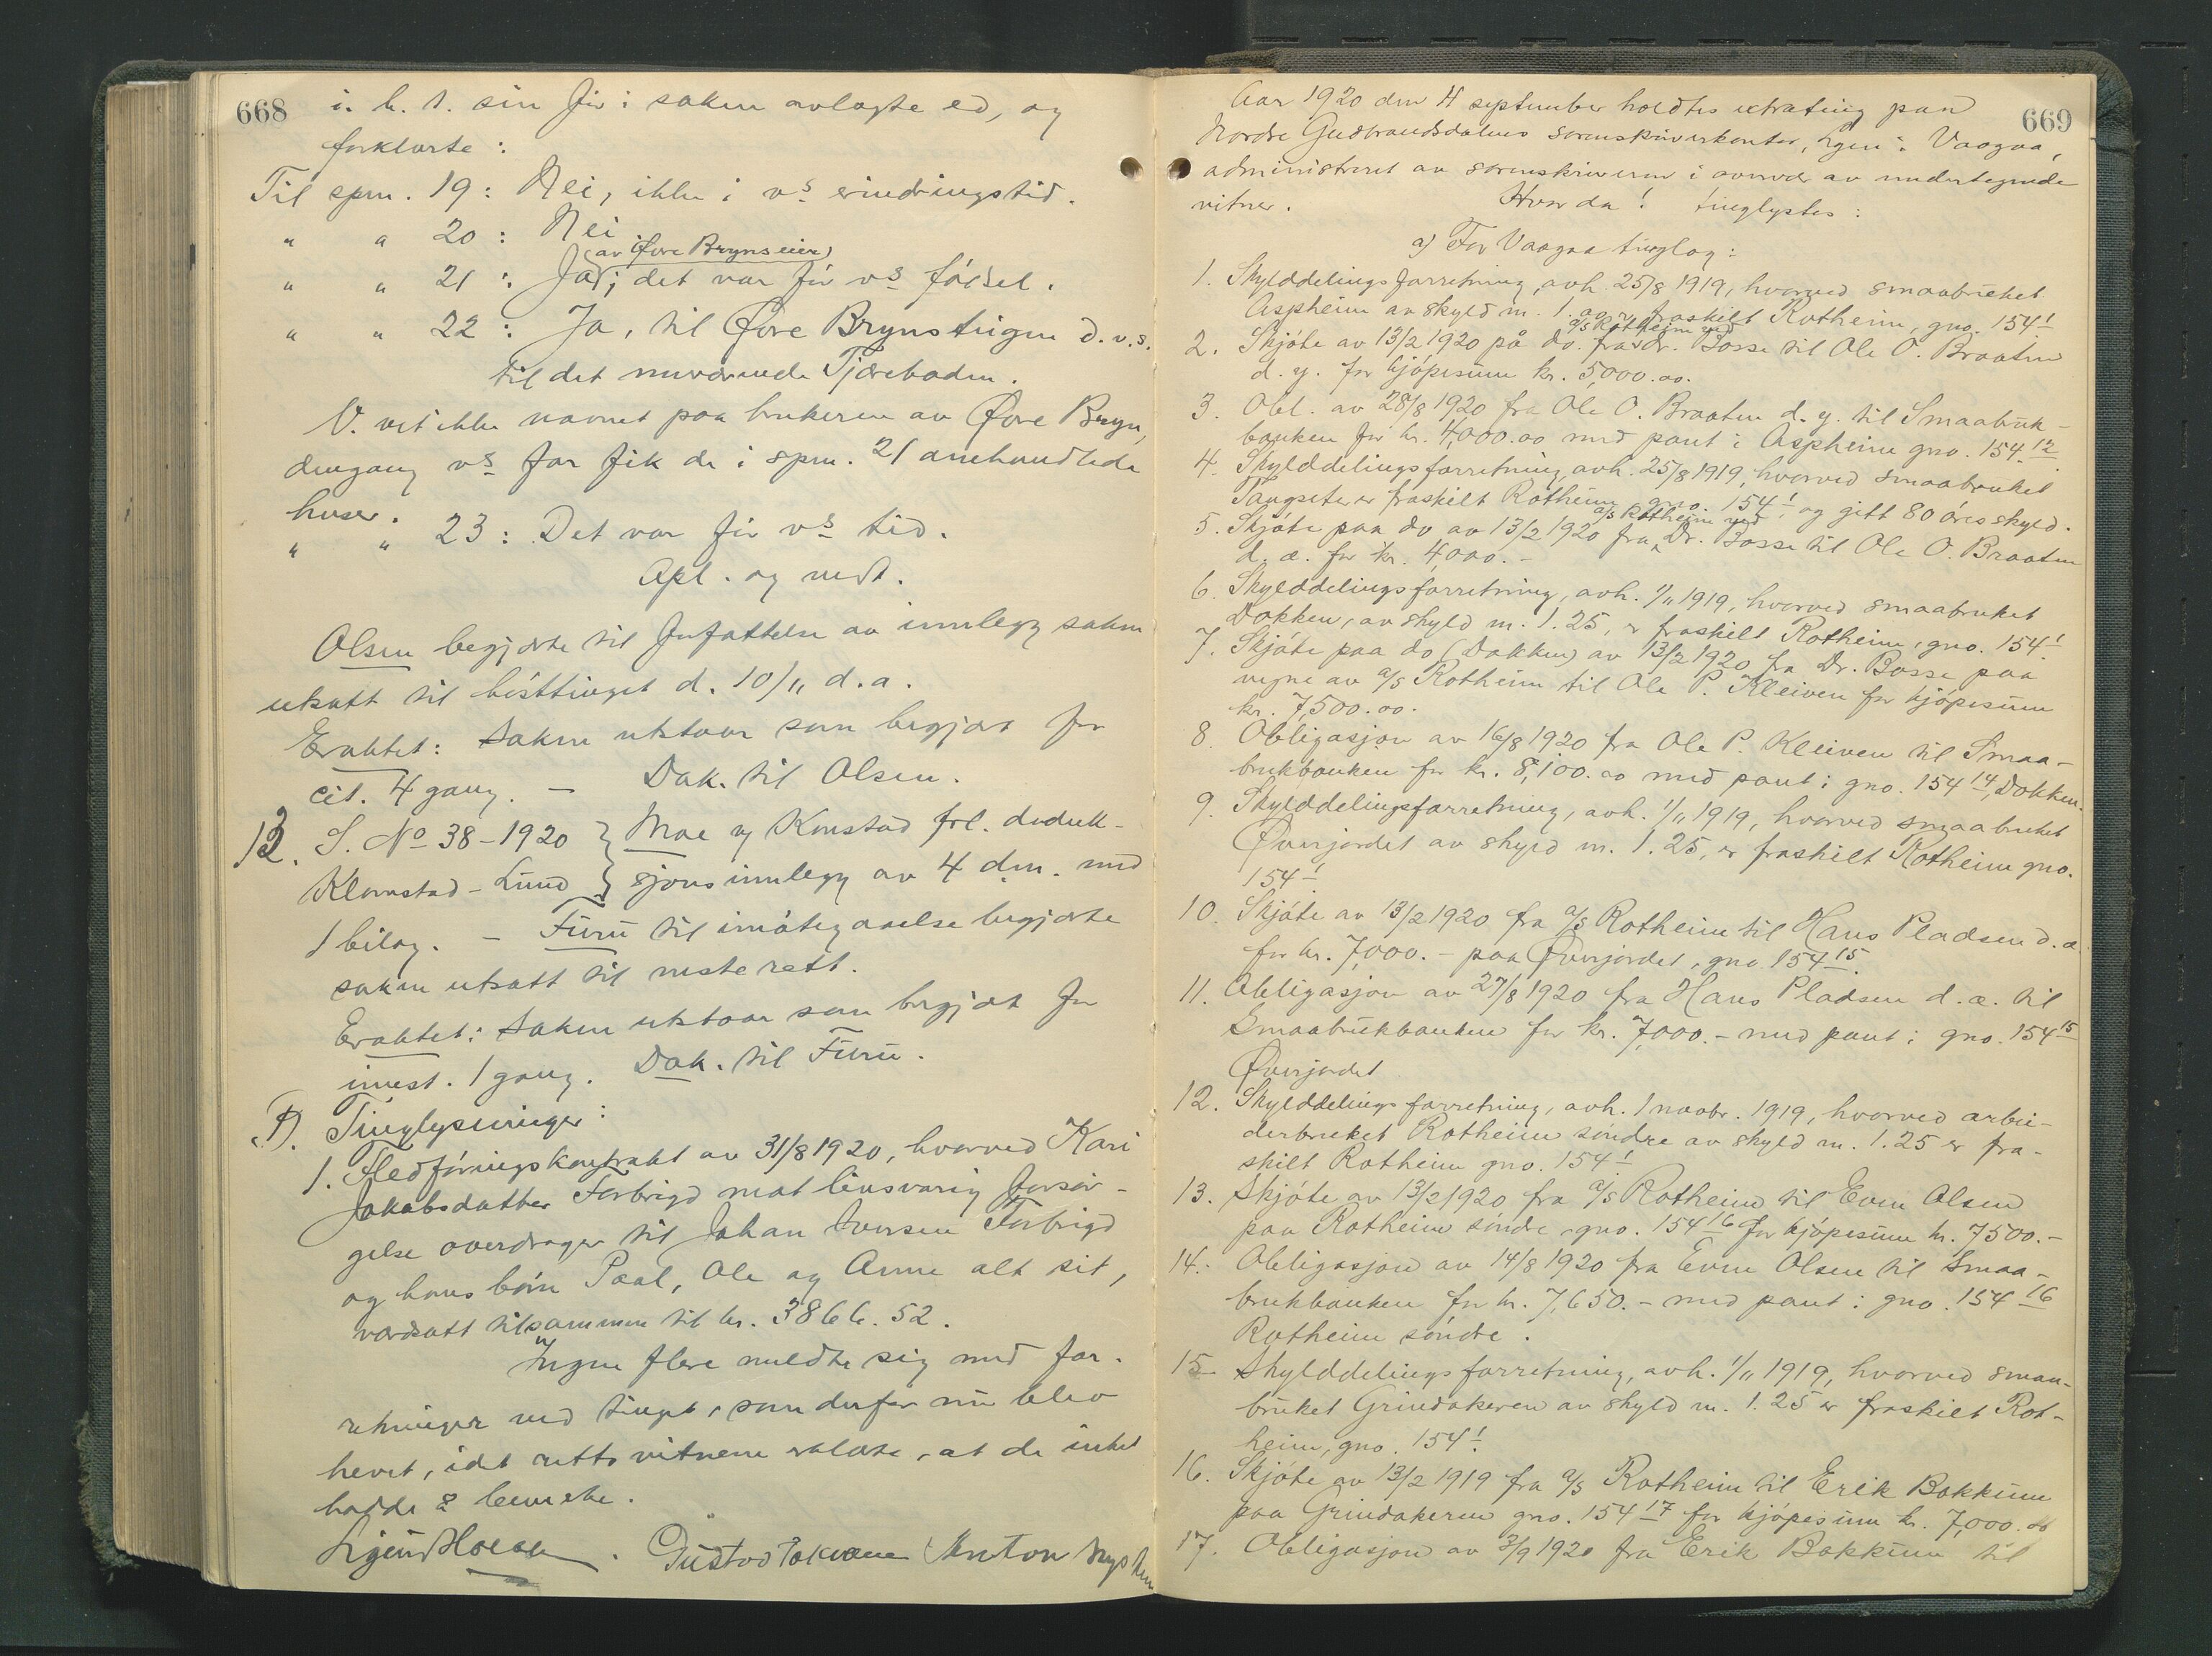 668
i. h. t. sin før i saken avlagte ed, og
forklarte :
Til spm. 19 : Nei, ikke i vs erindringstid.
" " 20 : Nei
(av Øvre Bryns eier)
" " 21 : Ja, det var før vs fødsel.
" " 22 : Ja, til Øvre Brynstuen d.v.s.
til det nuværende Tjæreboden.
V. vet ikke navnet paa brukeren av Øvre Bryn,
dengang vs far fik de i spm. 21 omhandlede
huser.
" " 23 : Det var før vs tid.
Opl. og vedt.
Olsen begjærte til forfattelse av innlegg saken
utsatt til høsttinget d. 10/11 d.a.
Eraktet: Saken utstaar som begjært for
cit. 4 gang. – Dok. til Olsen.
12. S. No 38 – 1920 } Moe og Konstad frl. deduk-
Klomstad – Lund } sjonsinnlegg av 4 dm. med
1 bilag. – Furu til imøtegaaelse begjærte
saken utsatt til neste rett.
Eraktet: Saken utstaar som begjært for
innst. 1 gang. Dok. til Furu.
D. Tinglysninger :
1. Fledføringskontrakt av 31/8 1920, hvorved Kari
Jakobsdatter Forbrigd mot livsvarig forsør-
gelse overdrager til Johan Iversen Forbrigd
og hans børn Paal, Ole og Anne alt sit,
værdsatt tilsammen til kr. 3866.52.
Ingen flere meldte sig med for-
retninger ved tinget, som derfor nu blev
hevet, idet rettsvitnene erklærte, at de intet
hadde å bemerke.
Gustav Anton
669
Aar 1920 den 11 september holdtes extrating paa
Nordre Gudbrandsdalens sorenskriverkontor, Lgen i Vaagaa,
administreret av sorenskriveren i overvær av undertegnede
vitner. Hvor da ! tinglystes :
a) For Vaagaa tinglag :
1. Skylddelingsforretning, avh. 25/8 1919, hvorved smaabruket
Aspheim av skyld m. 1.00 er fraskilt Rotheim, gno. 154 1
a/s Rotheim ved
2. Skjøte av 13/2 1920 på do. fra Dr. Bosse til Ole O. Braaten
d. y. for kjøpesum kr. 5,000.00.
3. Obl. av 28/8 1920 fra Ole O. Braaten d. y. til Smaabruk-
banken for kr. 4,000.00 med pant i Aspheim gno. 154 12
4. Skylddelingsforretning, avh. 25/8 1919, hvorved smaabruket
Tangseter er fraskilt Rotheim, gno. 154 1 og gitt 80 øres skyld.
a/s Rotheim ved
5. Skjøte paa do av 13/2 1920 fra Dr. Bosse til Ole O. Braaten
d. æ. for kr. 4,000. –
6. Skylddelingsforretning, avh. 1/11 1919, hvorved smaabruket
Dokken, av skyld m. 1.25, er fraskilt Rotheim, gno. 154 1
7. Skjøte paa do (Dokken) av 13/2 1920 fra Dr. Bosse paa
vegne av a/s Rotheim til Ole P. Kleiven for kjøpesum
kr. 7,500.00.
8. Obligasjon av 16/8 1920 fra Ole P. Kleiven til Smaa-
brukbanken for kr. 8,100.00 med pant i gno. 154 14, Dokken.
9. Skylddelingsforretning, avh. 1/11 1919, hvorved smaabruket
Øverjordet av skyld m. 1.25, er fraskilt Rotheim gno.
154 1
10. Skjøte av 13/2 1920 fra a/s Rotheim til Hans Pladsen d. æ.
for kr. 7,000. – paa Øverjordet, gno 154 15.
11. Obligasjon av 27/8 1920 fra Hans Pladsen d. æ. til
Smaabrukbanken for kr. 7,000. – med pant i gno. 154 15
Øverjordet
12. Skylddelingsforretning, avh. 1 novbr. 1919, hvorved arbei-
derbruket Rotheim søndre av skyld m. 1.25 er fra-
skilt Rotheim gno. 154 1
13. Skjøte av 13/2 1920 fra a/s Rotheim til Even Olsen
paa Rotheim søndre, gno. 154 16 for kjøpesum kr. 7500. –
14. Obligasjon av 14/8 1920 fra Even Olsen til Smaa-
brukbanken for kr. 7,650. – med pant i gno. 154 16
Rotheim søndre.
15. Skylddelingsforretning, avh. 1/11 1919, hvorved smaa-
bruket Grindakeren av skyld m. 1.25 er fraskilt Rot-
heim, gno. 154 1.
16. Skjøte av 13/2 1919 fra a/s Rotheim til Erik Bakkum
paa Grindakeren gno. 154 17 for kjøpesum kr. 7,000.00
17. Obligasjon av 3/9 1920 fra Erik Bakkum til